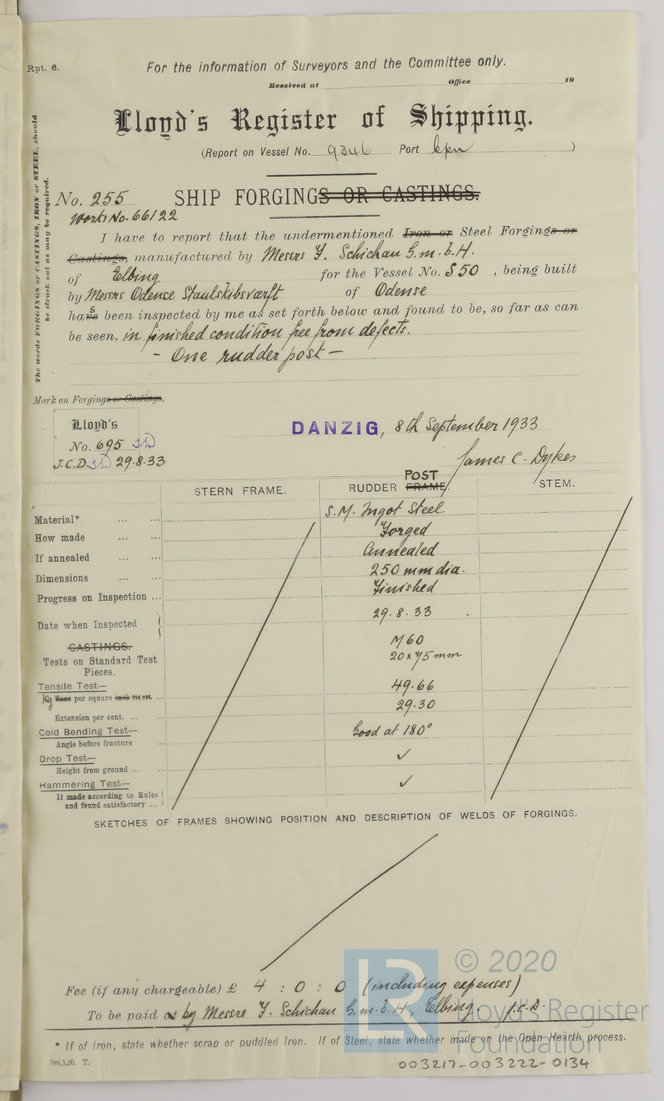 Rpt. 6.
For the information of Surveyors and the Committee only.
Received at Office 19
Lloyd's Register of Shipping.
(Report on Vessel No. 9346 Port kpn )
The words FORGINGS or CASTINGS, IRON or STEEL, should be struck out as may be required.
No. 255 SHIP FORGINGS OR CASTINGS.
Works No. 66122
I have to report that the undermentioned Iron or Steel Forgings or
Castings, manufactured by Messrs F. Schichau G.m.b.H.
of Elbing for the Vessel No. S50, being built
by Messrs Odense Staalskibsværft of Odense
has been inspected by me as set forth below and found to be, so far as can
be seen, in finished condition free from defects.
- One rudder post -
Mark on Forging or Castings.
Lloyd's
No. 695
J.C.D. 29.8.33
DANZIG, 8th September 1933
James C. Dykes
STERN FRAME. RUDDER FRAME. POST STEM.
Material* ... ... S.M. Ingot Steel
How made ... ... Forged
If annealed ... ... Annealed
Dimensions ... ... 250 mm dia.
Progress on Inspection ... Finished
Date when Inspected 29.8.33
CASTINGS. M60
Tests on Standard Test Pieces. 20 x 75 mm
Tensile Test—
Kg Tons per square inch mm ... 49.66
Extension per cent. ... ... 29.30
Cold Bending Test— Good at 180°
Angle before fracture
Drop Test— ✓
Height from ground ... ...
Hammering Test— ✓
If made according to Rules
and found satisfactory ...
SKETCHES OF FRAMES SHOWING POSITION AND DESCRIPTION OF WELDS OF FORGINGS.
Fee (if any chargeable) £ 4 : 0 : 0 (including expenses)
To be paid by Messrs F. Schichau G.m.b.H., Elbing. J.C.D.
* If of Iron, state whether scrap or puddled Iron. If of Steel, state whether made on the Open Hearth process.
003217-003222-0134
© 2020
Lloyd's Register
Foundation